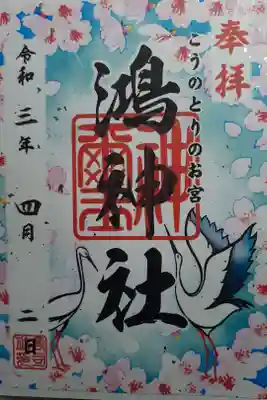 奉拝
こうのとりのお宮
鴻神社
令和三年四月二日